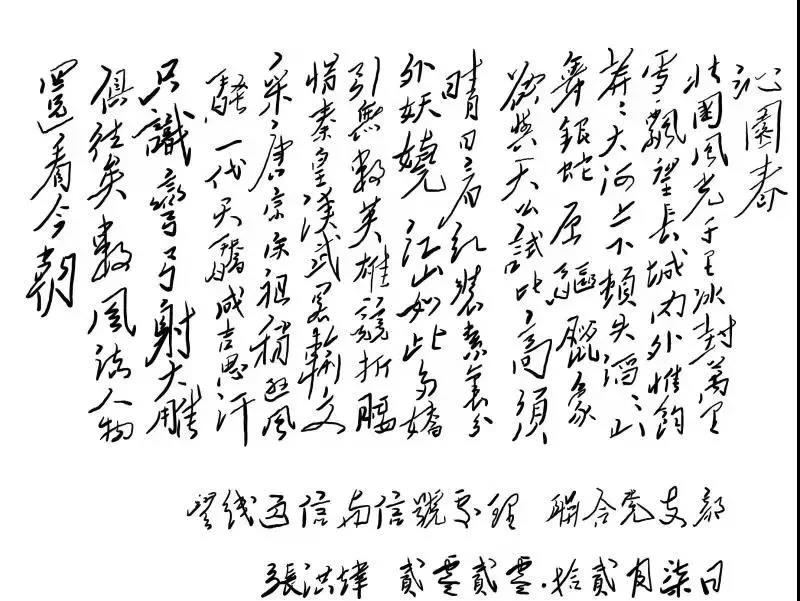 沁園春
北國風光千里冰封萬里
雪飄望長城内外惟餘
莽〻大河上下頓失滔〻山
舞銀蛇原驅臘象
欲與天公試比高須
晴日看紅裝素裹分
外妖嬈江山如此多嬌
引無數英雄競折腰
惜秦皇漢武略輸文
采唐宗宋祖稍遜風
騷一代天驕成吉思汗
只識彎弓射大雕
俱往矣數風流人物
還看今朝
线通信与信號處理 聯合党支部
張洪煒 貳零貳零.拾貳月柒日